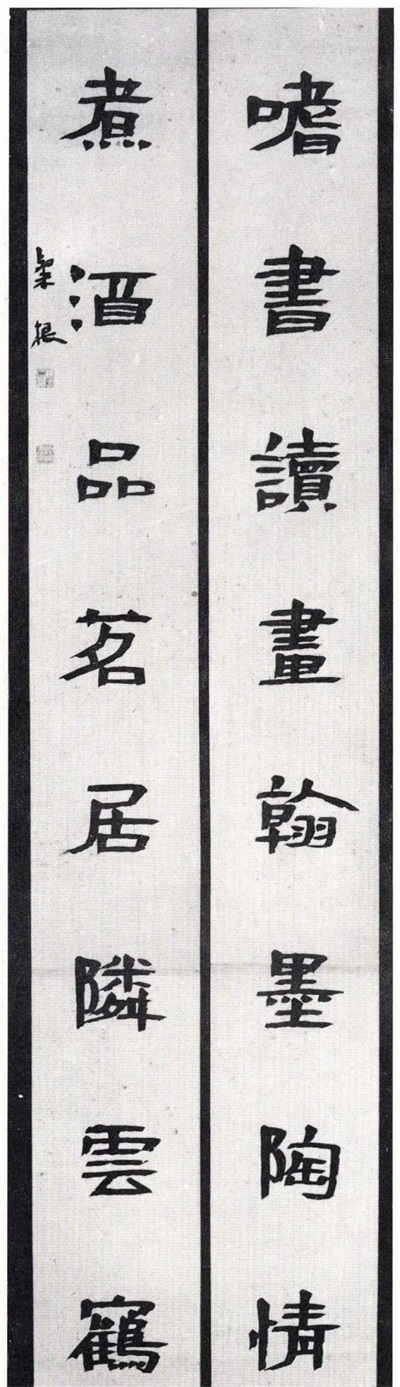 嗜書讀畫翰墨陶情
煮酒品茗居隣雲鶴